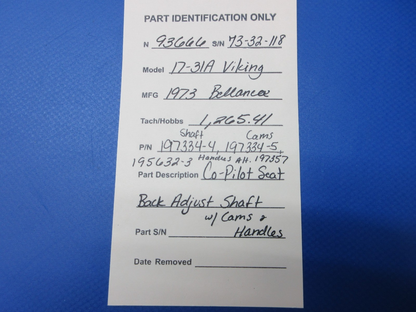 PART IDENTIFICATION ONLY
N 93666 S/N 73-32-118
Model 17-31A Viking
MFG 1973 Bellanca
Tach/Hobbs 1,265.41
Shaft Cams
P/N 197334-4, 197334-5,
195632-3 Handles AH. 197357
Part Description Co-Pilot Seat
Back Adjust Shaft
w/ Cams &
Part S/N Handles
Date Removed